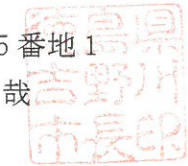 5番地1
哉
徳島県
吉野川
市長印